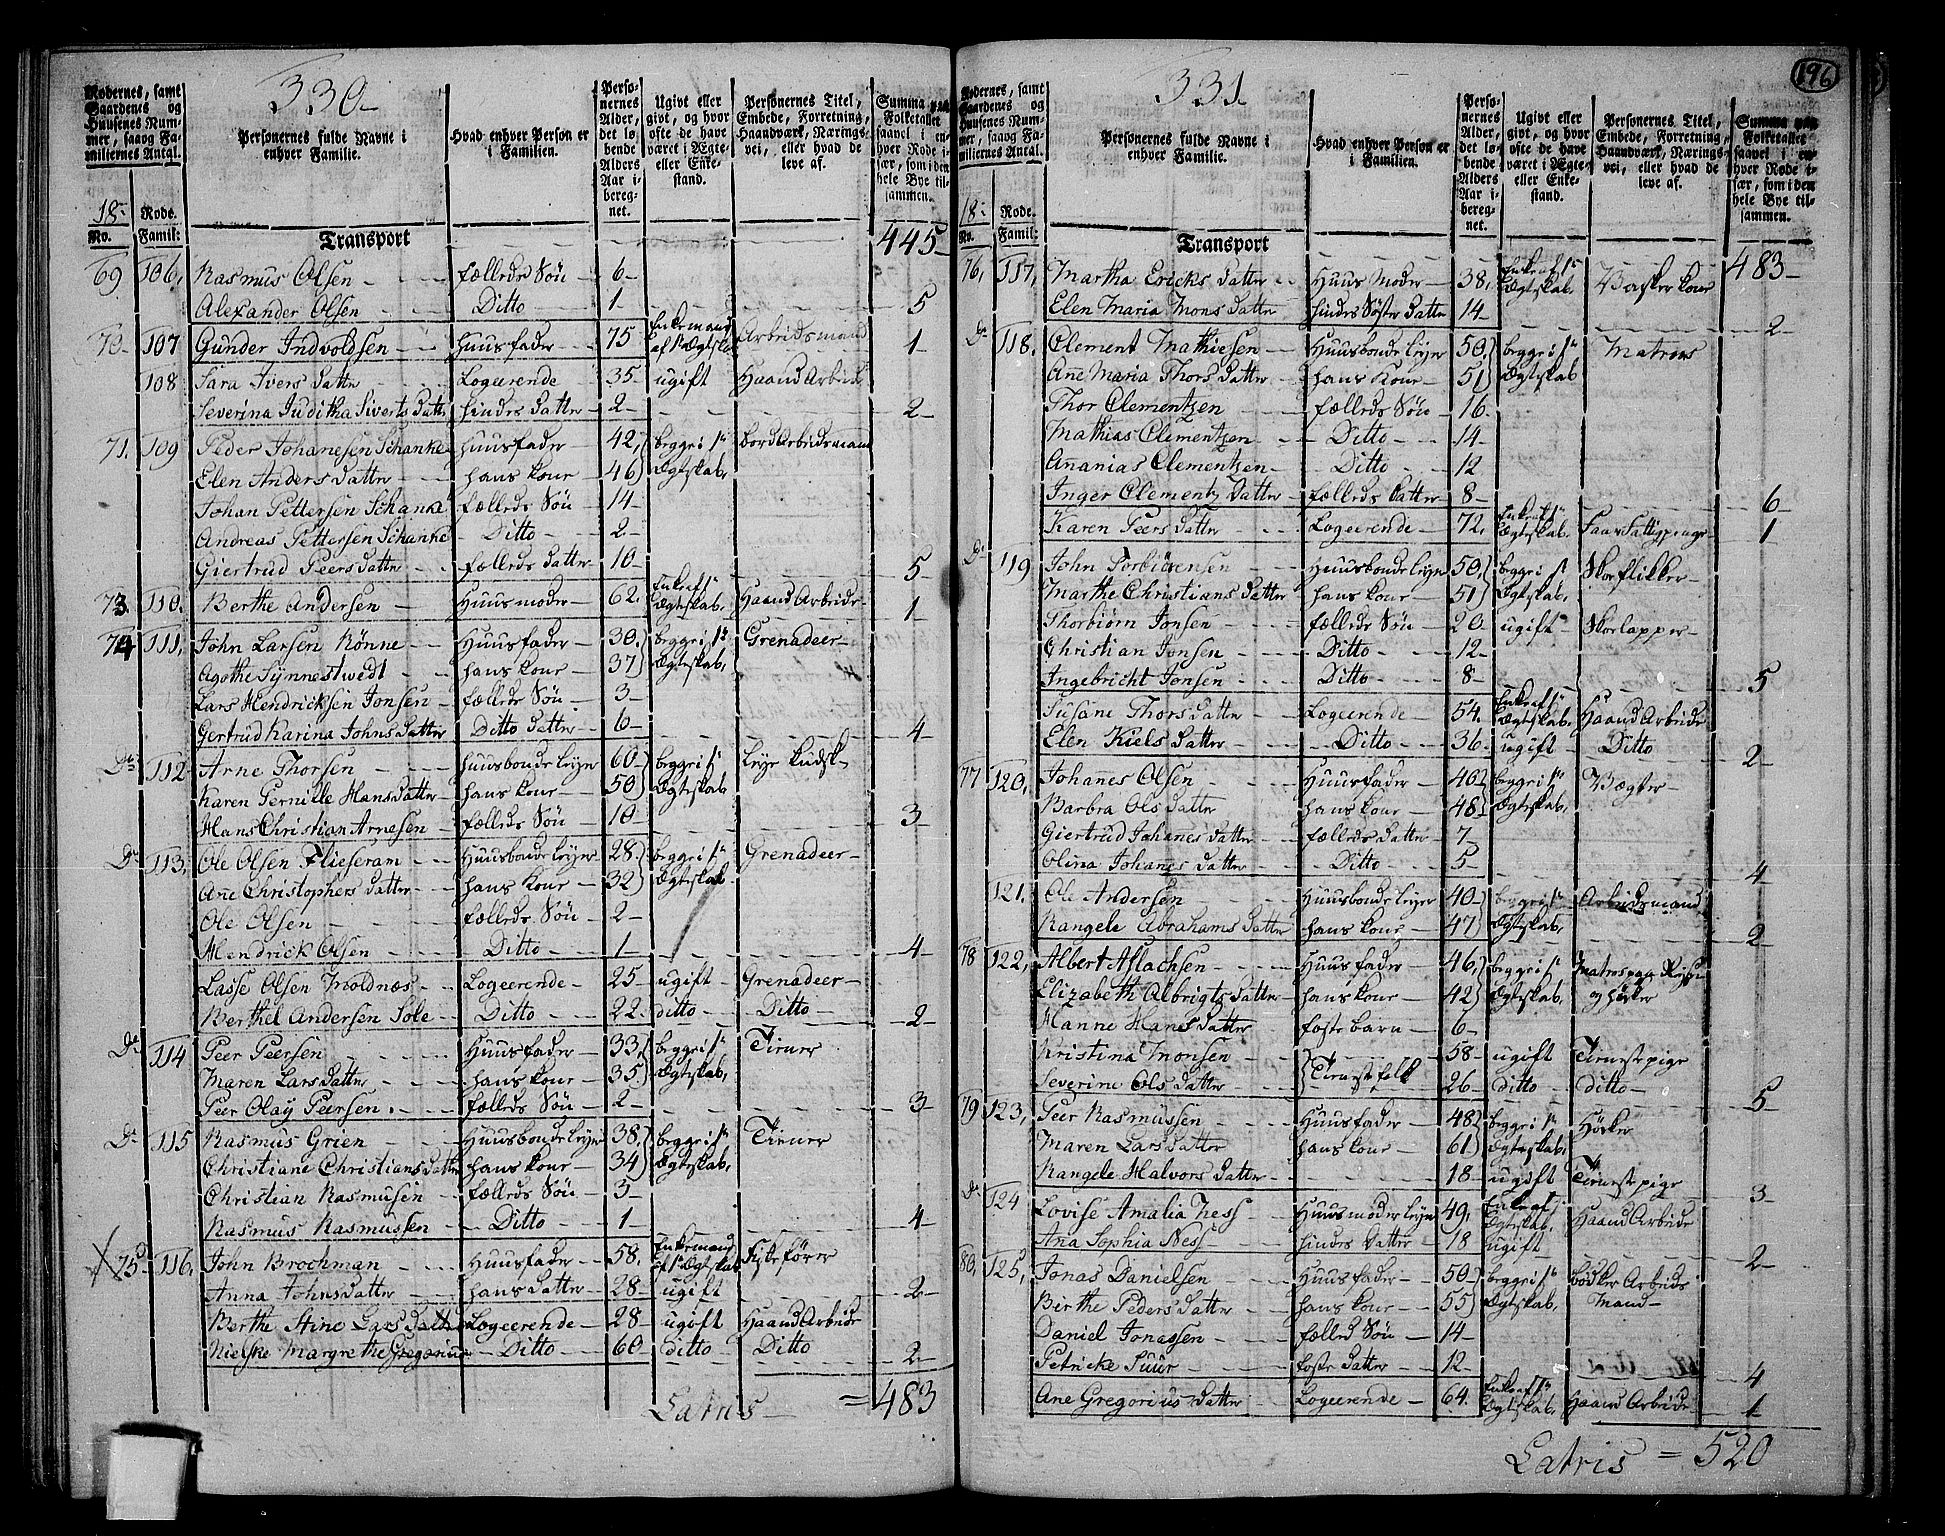 330
Rodernes, samt Gaardenes og Huusenes Nummer, saavog Familiernes Antal.
Personernes fulde Navne i enhver Familie.
Hvad enhver Person er i Familien.
Personernes Alder, det løbende Alders Aar iberegnet.
Ugivt eller givt, og hvor ofte de have været i Ægte- eller Enkestand.
Personernes Titel, Embede, Forretning, Haandværk, Næringsvei, eller hvad de leve af.
Summa paa Folketallet saavel i enhver Rode især, som i den hele Bye tilsammen.
18- Rode.
No. Famil: Transport 445
69 106, Rasmus Olsen fælleds Sön 6
Alexander Olsen Ditto 1 5
70 107 Gunder Indvoldsen Huusfader 75 Enkemand af 1ste Ægtesk. Arbeidsmand 1
108 Sara Ivers Datter Logeerende 35 ugift Haand Arbeide
Severina Juditha Siverts Datter hindes Datter 2 2
71. 109 Peder Johanesen Schanke Huusfader 42, begge i 1ste Bord Arbeidsmand
Elen Anders Datter hans Kone 46 Ægteskab.
Johan Pettersen Schanke fælleds Sön 14
Andreas Pettersen Schanke Ditto 2
Giertrud Peers Datter fælleds Datter 10 5
73. 110. Berthe Andersen Huusmoder 62. Enke af 1ste Ægteskab. Haand Arbeide 1
74 111, John Larsen Rönne Huusfader 30. begge i 1ste Grenadeer
Agothe Synnestwedt hans Kone 37 Ægteskab,
Lars Hendricksen Jonsen fælleds Sön 3
Gertrud Karina Johns Datter Ditto Datter 6 4
Do 112 Arne Thorsen Huusbonde leyer 60 begge i 1ste Leye Kudsk
Karen Pernille Hans Datter hans Kone 50 Ægteskab
Hans Christian Arnesen fælleds Sön 10 3
Do 113, Ole Olsen Flieseram Huusbonde leyer 28 begge i 1ste Grenadeer
Ane Christophers Datter hans Kone 32 Ægteskab
Ole Olsen fælleds Sön 2
Hendrick Olsen Ditto 1 4
Lasse Olsen Moldnæs Logeerende 25 ugift Grenadeer
Berthel Andersen Sole Ditto 22 ditto Ditto 2
Do 114 Peer Peersen Huusfader 33, begge i 1ste Tiener
Maren Lars Datter hans Kone 35. Ægteskab,
Peer Olay Peersen fælleds Sön 2 3
Do 115 Rasmus Grien Huusbonde leyer 38. begge i 1ste Tiener
Christiane Christians Datter hans Kone 34 Ægteskab,
Christian Rasmusen fælleds Sön 3
Rasmus Rasmussen Ditto 1 4
75 116, John Brochman Huusfader 58. Enkemand af 1ste Ægteskab Fiskefører
Anna Johns Datter hans Datter 28 ugift 2
Berthe Ane Lars Datter Logeerende 28 ugift Haand Arbeide
Nielske Margrethe Gregorius Ditto 60 ditto Ditto 2
Latris = 483
331.
196
Rodernes, samt Gaardenes og Huusenes Nummer, saavog Familiernes Antal.
Personernes fulde Navne i enhver Familie.
Hvad enhver Person er i Familien.
Personernes Alder, det løbende Alders Aar iberegnet.
Ugivt eller givt, og hvor ofte de have været i Ægte- eller Enkestand.
Personernes Titel, Embede, Forretning, Haandværk, Næringsvei, eller hvad de leve af.
Summa paa Folketallet saavel i enhver Rode især, som i den hele Bye tilsammen.
18- Rode.
No. Famil: Transport 483
76, 117, Martha Ericks Datter Huus Moder 38, Enke af 1ste Ægteskab. Vasker Kone
Elen Maria Mons Datter hindes Söster Datter 14 2
Do 118. Clement Mathiesen Huusbonde leyer 50, begge i 1ste Matros
Ane Maria Thors Datter hans Kone 51 Ægteskab
Thor Clementzen fælleds Sön 16
Mathias Clementzen Ditto 14
Ananias Clementzen Ditto 12
Inger Clementz Datter fælleds Datter 8 6
Karen Peers Datter Logeerende 72, Enke af 1ste Ægteskab. Faar Fattigpenge 1
Do 119 John Torbiörensen Huusbonde leyer 50, begge i 1ste Skoeflikker
Marthe Christians Datter hans Kone 51 Ægteskab,
Thorbiörn Jonsen fælleds Sön 20 ugift Skoelapper
Christian Jonsen Ditto 12
Ingebricht Jonsen Ditto 8 5
Susane Thors Datter Logeerende 54. Enke af 1ste Ægteskab. Haand Arbeide
Elen Kiels Datter Ditto 36 ugift Ditto 2
77 120, Johanes Olsen Huusfader 40 begge i 1ste Vægter
Barbra Ols Datter hans Kone 48 Ægteskab,
Giertrud Johanes Datter fælleds Datter 7
Olina Johanes Datter Ditto 5 4
121. Ole Andersen Huusbonde leyer 40 begge i 1ste Arbeidsmand
Rangele Abrahams Datter hans Kone 47 Ægteskab, 2
78 122, Albert Aslachsen Huusfader 46, begge i 1ste Matros paa Reyse
Elizabeth Albrigts Datter hans Kone 42 Ægteskab, og Höker
Hanne Hans Datter foste barn 6
Kristina Monsen Tieneste folk 58 ugift Tieneste pige
Severine Ols Datter 26 ditto ditto 5
79 123, Peer Rasmussen Huusfader 48 begge i 1ste Höker
Maren Lars Datter hans Kone 61 Ægteskab,
Rangele Halvors Datter 18 ugift Tieneste pige 3
Do 124 Lovise Amalia Ness Huusmoder leyer 49, Enke af 1 Ægteskab. Haand Arbeide
Ana Sophia Ness hindes Datter 18 ugift 2
80, 125, Jonas Danielsen Huusfader 50 begge i 1ste Bödker Arbeids
Birthe Peders Datter hans Kone 55 Ægteskab, Mand
Daniel Jonassen fælled Sön 14
Petricke Suur foste Datter 12 4
Ane Gregorius Datter Logeerende 64. Enke af 1ste Ægteskab, Haand Arbeide 1
Latris = 520